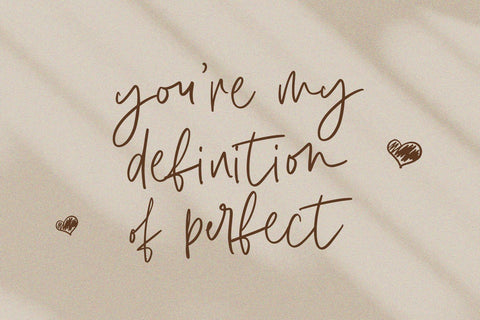 you're my
definition
of perfect